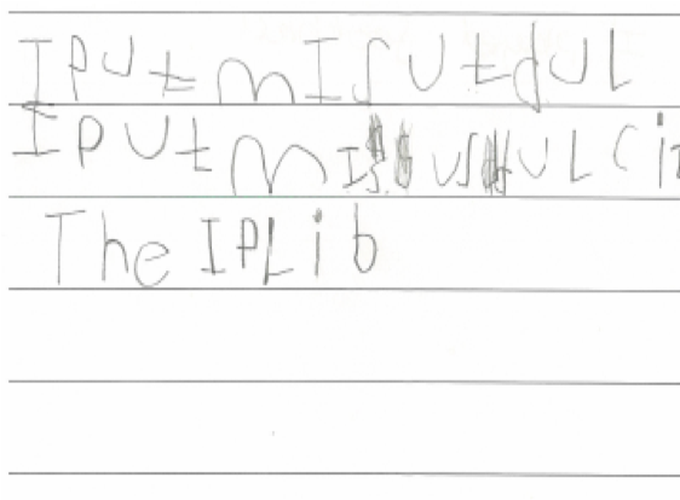 I PUt m IS UtdUL
I PUt m IS USdUL Cit
The IPLib